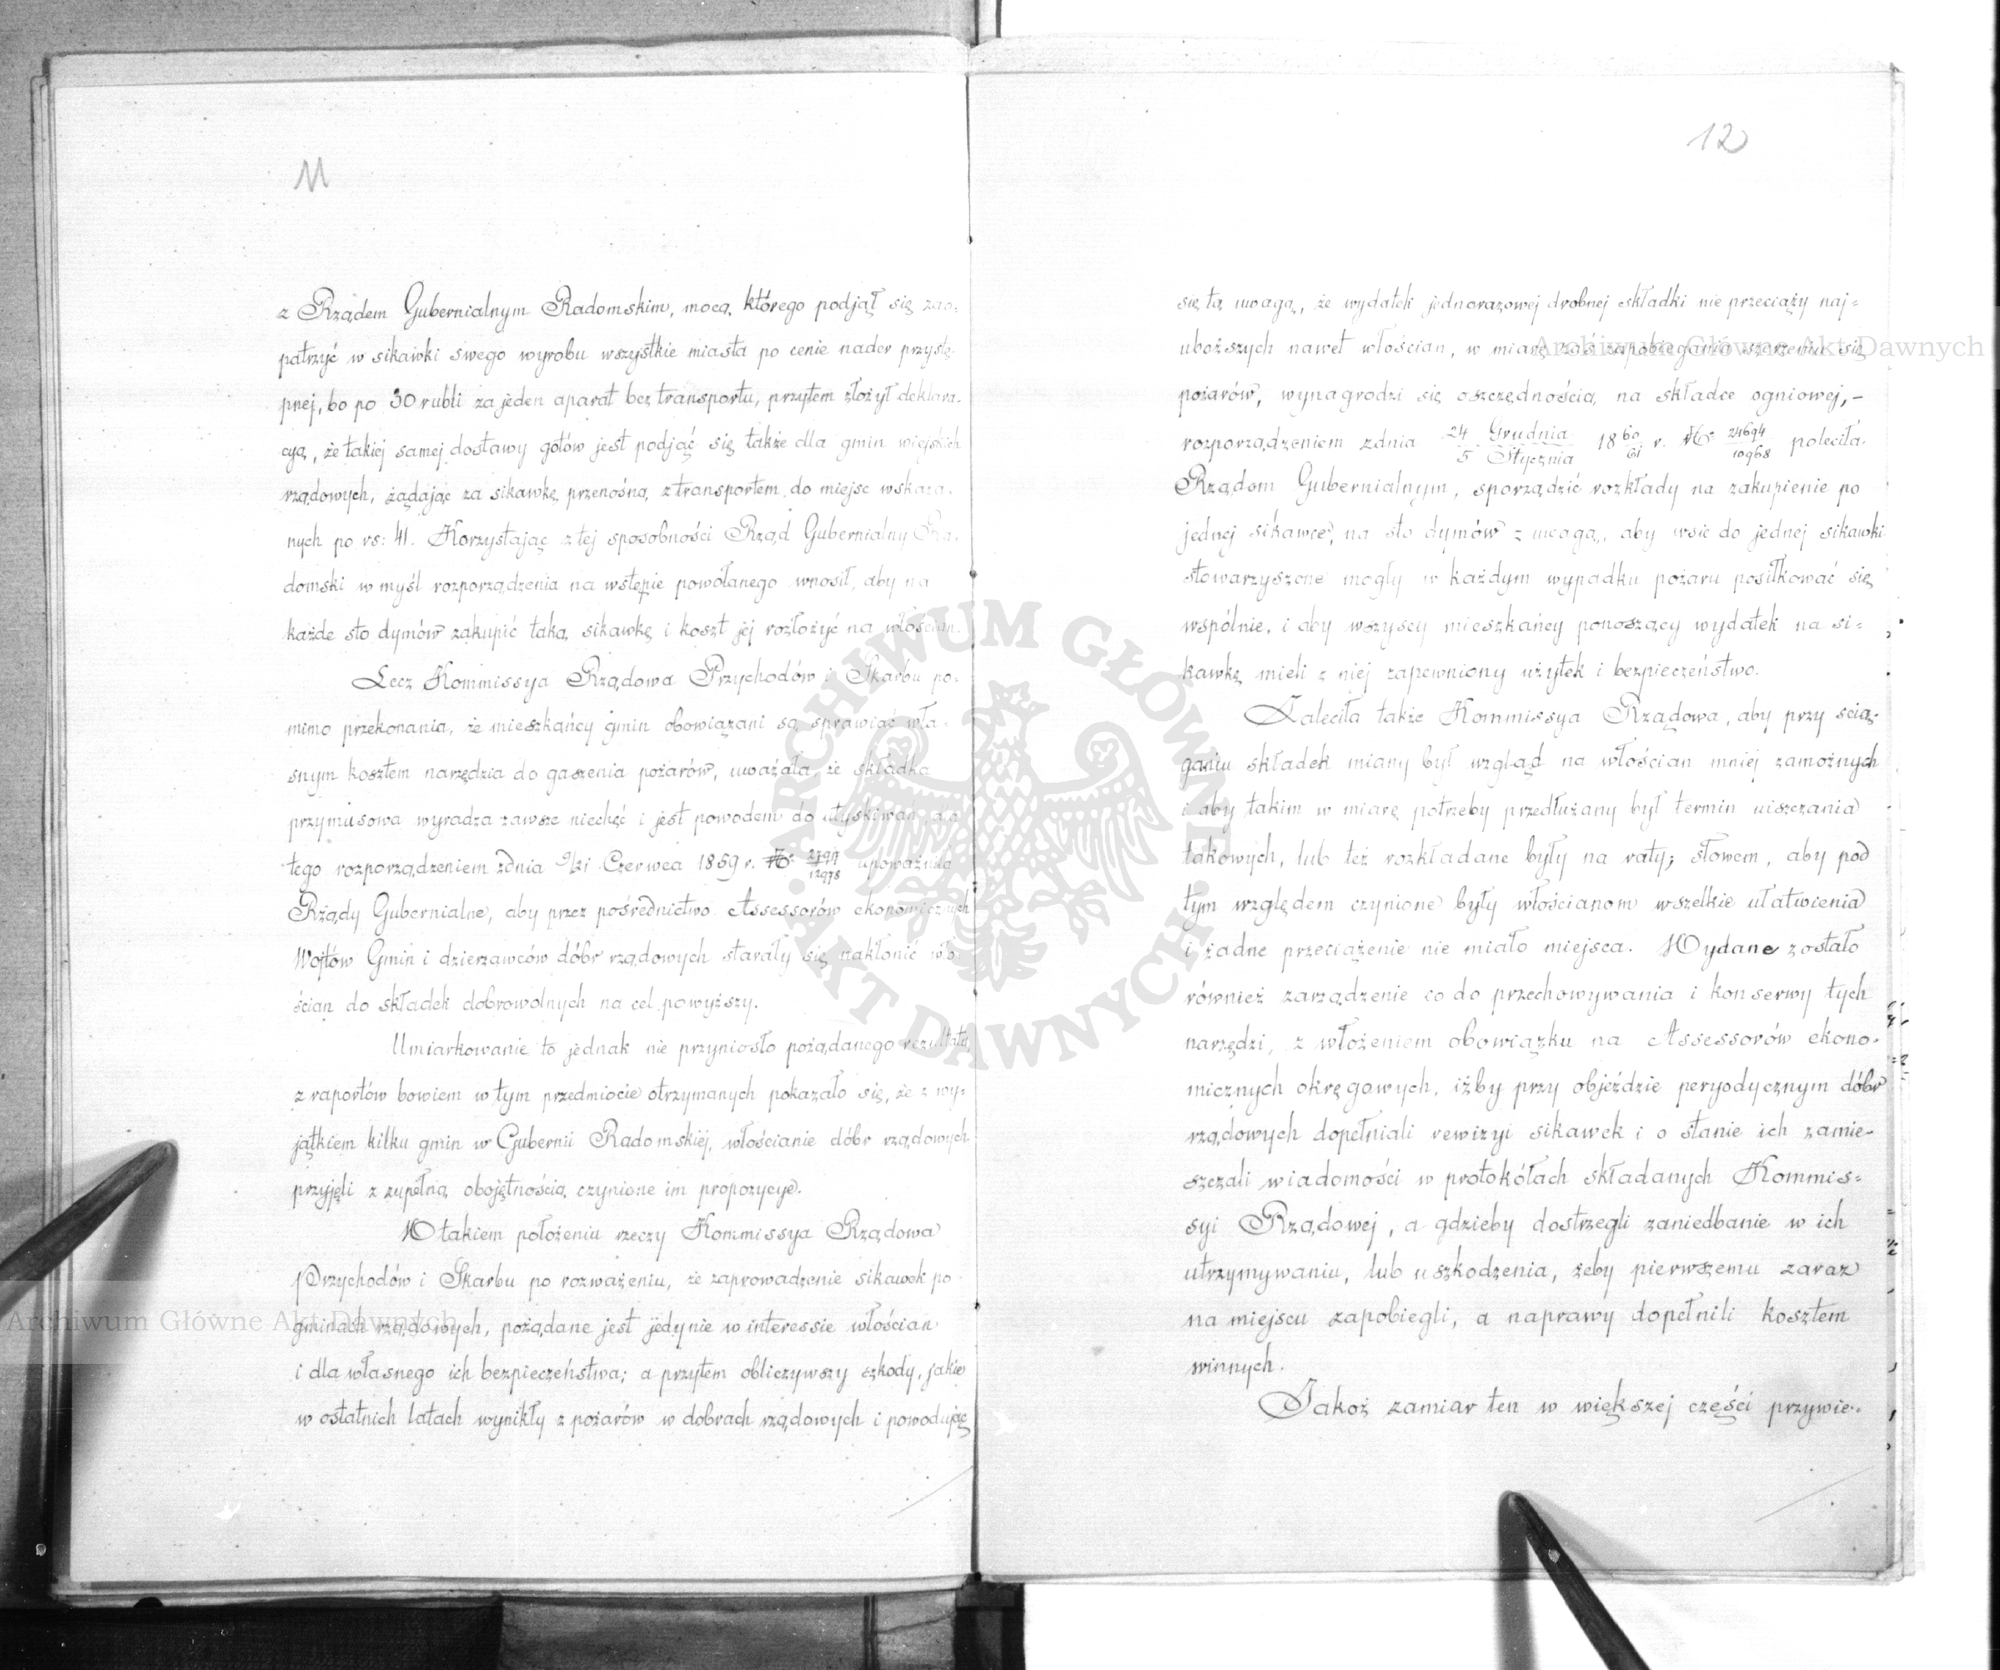 11
z Rządem Gubernialnym Radomskim, mocą którego podjął się zao-
patrzyć w sikawki swego wyrobu wszystkie miasta po cenie nader przystę-
pnej, bo po 30 rubli za jeden aparat bez transportu, przytem złożył deklara-
cyą, że takiej samej dostawy gotów jest podjąć się także dla gmin wiejskich
rządowych, żądając za sikawkę przenośną z transportem do miejsc wskaza-
nych po rs: 41. Korzystając z tej sposobności Rząd Gubernialny Ra-
domski w myśl rozporządzenia na wstępie powołanego wnosił, aby na
każde sto dymów zakupić taką sikawkę i koszt jej rozłożyć na włościan.
Lecz Kommissya Rządowa Przychodów i Skarbu po-
mimo przekonania, że mieszkańcy gmin obowiązani są sprawiać wła-
snym kosztem narzędzia do gaszenia pożarów, uważała, że składka
przymusowa wyradza zawsze niechęć i jest powodem do utyskiwań, dla
tego rozporządzeniem z dnia 9/21 Czerwca 1859 r. No 12978 upoważniła
Rządy Gubernialne, aby przez pośrednictwo Assessorów ekonomicznych
Wójtów Gmin i dzierzawców dóbr rządowych starały się nakłonić wło-
ścian do składek dobrowolnych na cel powyższy.
Umiarkowanie to jednak nie przyniosło pożądanego rezultatu,
z raportów bowiem w tym przedmiocie otrzymanych pokazało się, że z wy-
jątkiem kilku gmin w Gubernii Radomskiej, włościanie dóbr rządowych
przyjęli z zupełną obojętnością czynione im propozycye.
W takiem położeniu rzeczy Kommissya Rządowa
Przychodów i Skarbu po rozważeniu, że zaprowadzenie sikawek po
gminach rządowych, pożądane jest jedynie w interessie włościan
i dla własnego ich bezpieczeństwa; a przytem obliczywszy szkody, jakie
w ostatnich latach wynikły z pożarów w dobrach rządowych i powodując
12
się tą uwagą, że wydatek jednorazowej drobnej składki nie przeciąży naj-
uboższych nawet włościan, w miarę zaś zapobiegania szerzeniu się
pożarów, wynagrodzi się oszczędnością na składce ogniowej, -
rozporządzeniem z dnia 24 Grudnia / 5 Stycznia 18 60/61 r. No 24694/10968 poleciła
Rządom Gubernialnym, sporządzić rozkłady na zakupienie po
jednej sikawce, na sto dymów z uwagą, aby wsie do jednej sikawki
stowarzyszone mogły w każdym wypadku pożaru posiłkować się
wspólnie, i aby wszyscy mieszkańcy ponoszący wydatek na si-
kawkę mieli z niej zapewniony użytek i bezpieczeństwo.
Zaleciła także Kommissya Rządowa, aby przy ścią-
ganiu składek miany był wzgląd na włościan mniej zamożnych
i aby takim w miarę potrzeby przedłużany był termin uiszczania
takowych, lub też rozkładane były na raty; słowem, aby pod
tym względem czynione były włościanom wszelkie ułatwienia
i żadne przeciążenie nie miało miejsca. Wydane zostało
również zarządzenie co do przechowywania i konserwy tych
narzędzi, z włożeniem obowiązku na Assessorów ekono-
micznych okręgowych, iżby przy objeździe peryodycznym dóbr
rządowych dopełniali rewizyi sikawek i o stanie ich zamie-
szczali wiadomości w protokółach składanych Kommis-
syi Rządowej, a gdzieby dostrzegli zaniedbanie w ich
utrzymywaniu, lub uszkodzenia, żeby pierwszemu zaraz
na miejscu zapobiegli, a naprawy dopełnili kosztem
winnych.
Jakoż zamiar ten w większej części przywie-
Archiwum Główne Akt Dawnych
Archiwum Główne Akt Dawnych
ARCHIWUM GŁÓWNE
AKT DAWNYCH